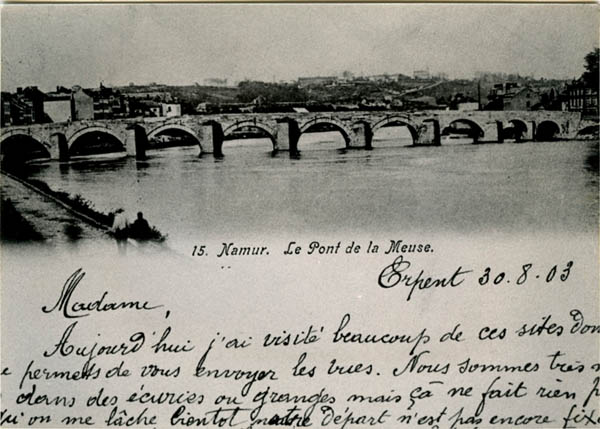 15. Namur. Le Pont de la Meuse.
Erpent 30.8.03
Madame,
Aujourd'hui j'ai visité beaucoup de ces sites don
e permets de vous envoyer les vues. Nous sommes très
dans des écuries ou granges mais çà ne fait rien p
qu'on me lâche bientot notre Départ n'est pas encore fixé